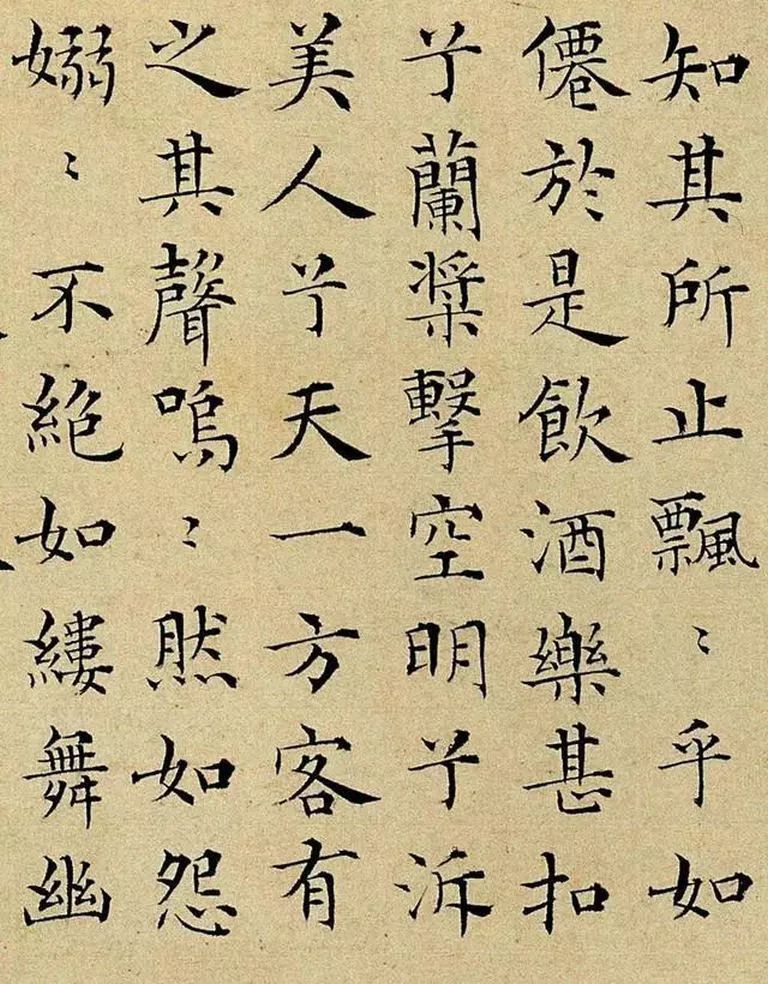 知其所止飄〻乎如
僊於是飲酒樂甚扣
兮蘭槳擊空明兮泝
美人兮天一方客有
之其聲嗚〻然如怨
嫋〻不絶如縷舞幽